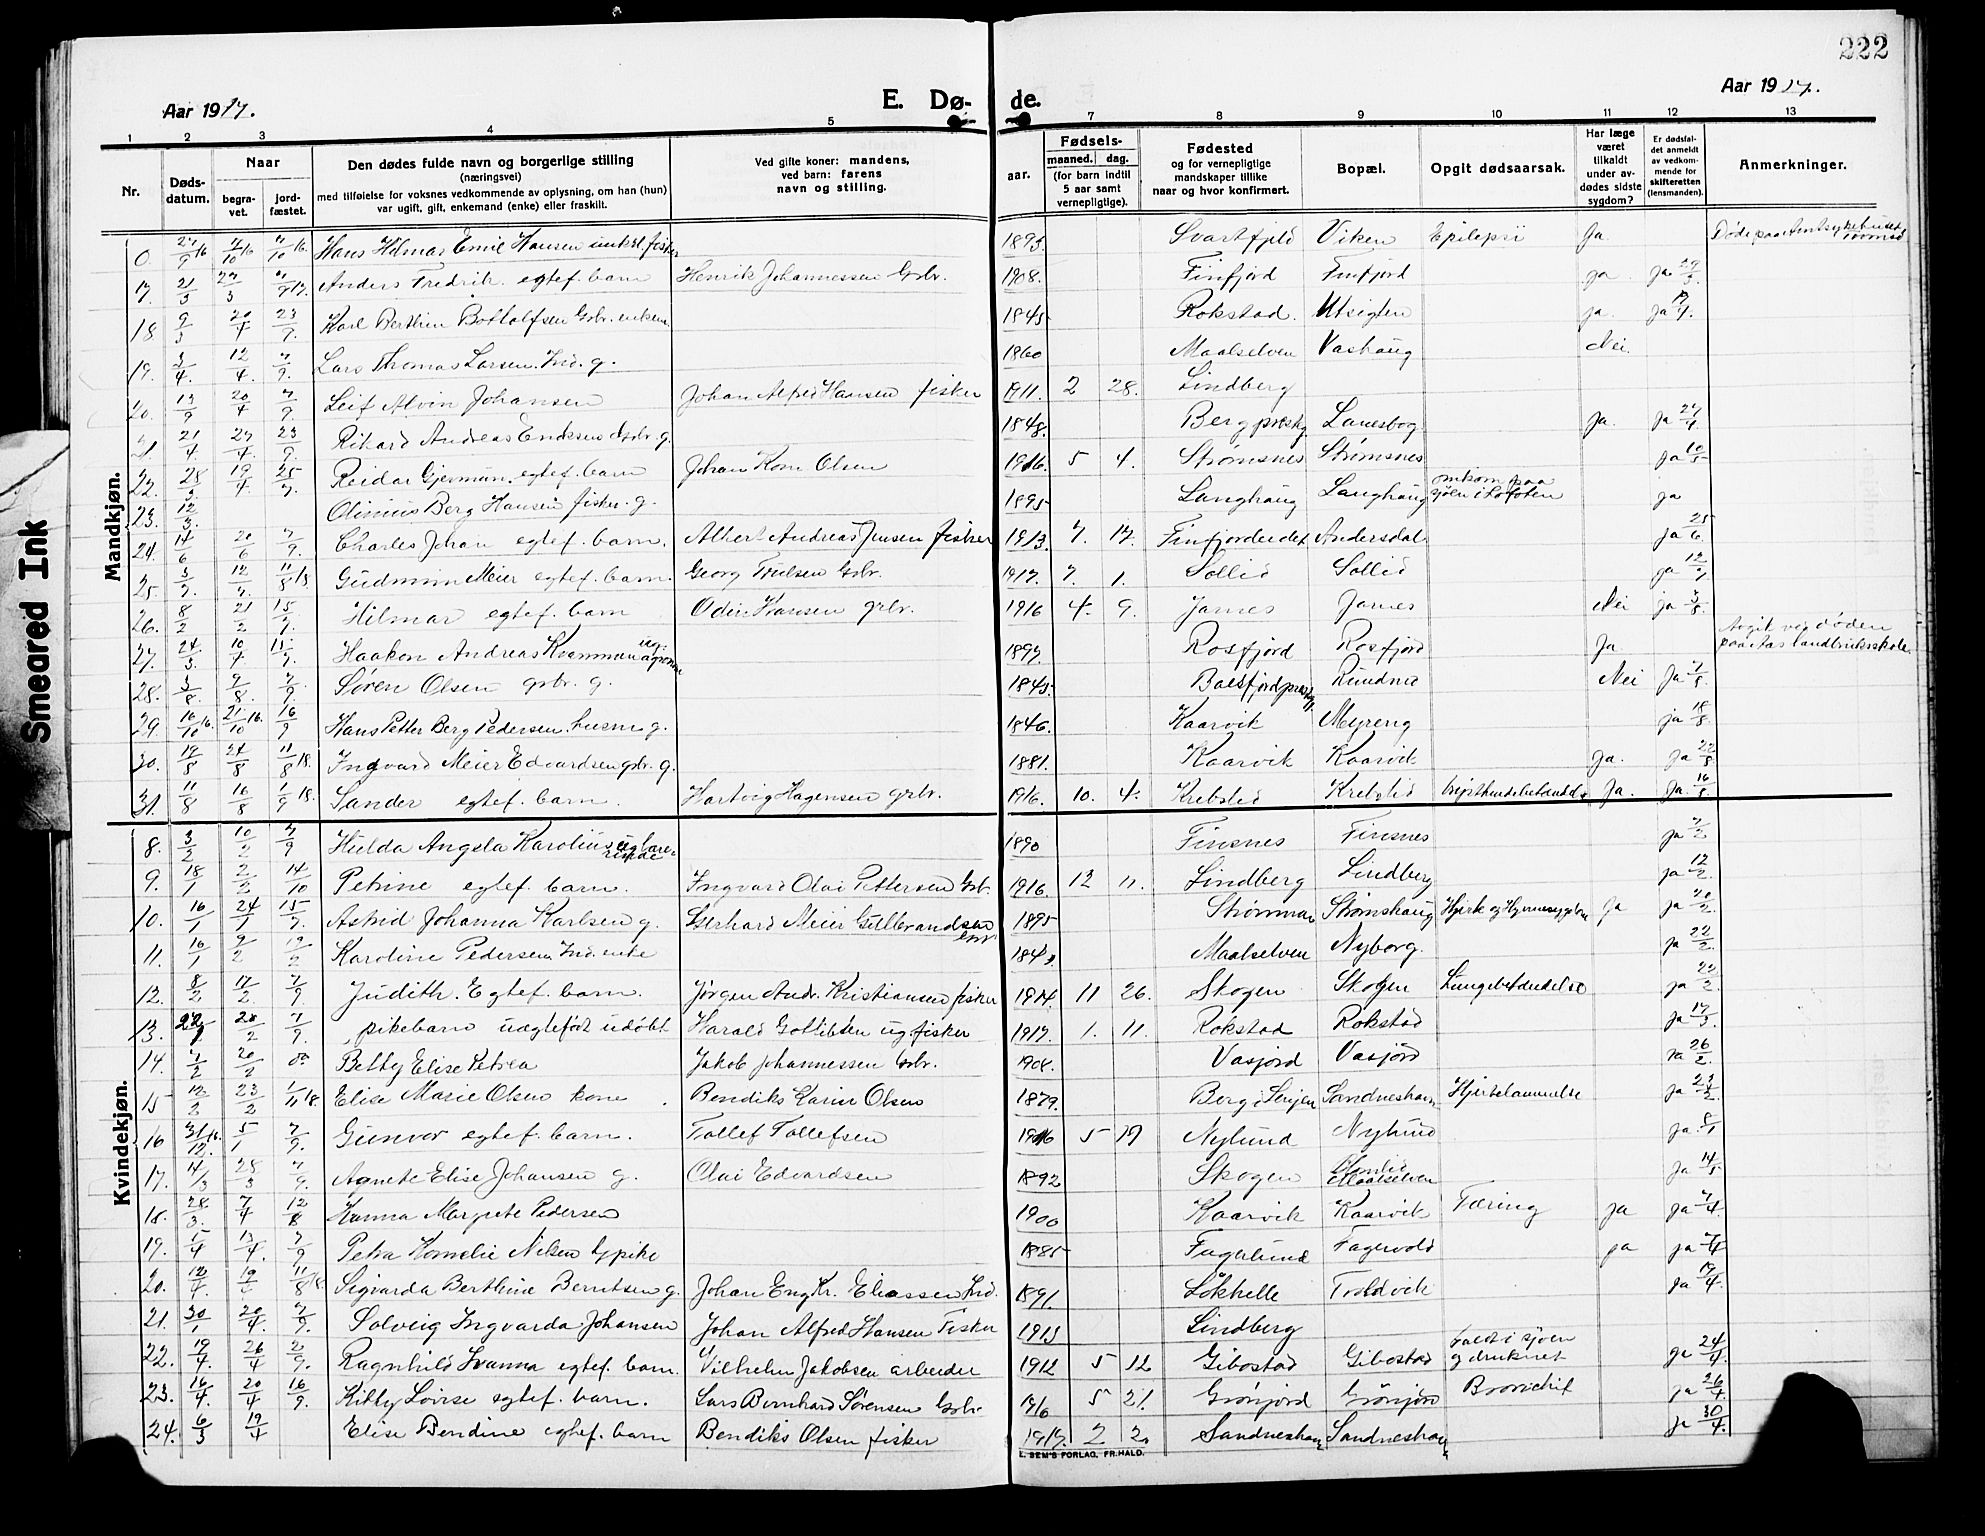 222
Aar 1917.
E. Dø-
de.
Aar 1917.
1 2 3 4 5 7 8 9 10 11 12 13
Nr.
Døds-datum.
Naar
begra-vet.
jord-fæstet.
Den dødes fulde navn og borgerlige stilling
(næringsvei)
med tilføielse for voksnes vedkommende av oplysning, om han (hun)
var ugift, gift, enkemand (enke) eller fraskilt.
Ved gifte koner: mandens,
ved barn: farens
navn og stilling.
aar.
Fødsels-
maaned. dag.
(for barn indtil
5 aar samt
vernepligtige).
Fødested
og for vernepligtige
mandskaper tillike
naar og hvor konfirmert.
Bopæl.
Opgit dødsaarsak.
Har læge
været
tilkaldt
under av-
dødes sidste
sygdom?
Er dødsfal-
det anmeldt
av vedkom-
mende for
skifteretten
(lensmanden).
Anmerkninger.
Mandkjøn.
0. 27/9 16 Hans Hilmar Emil Hansen fisker 1893. Svartfjeld Viken Epilepsi Ja
17. 21/3 Anders Fredrik egtef. barn Henrik Johannessen Gbr. 1908. Finfjord Finfjord ja ja
18. 9/3 20/4 23/9. Karl Berthin Bottolfsen Gbr. enkem 1845 Rokstad. Utsigten ja. ja
19. 3/4. 12/4. 7/9. Lars Thomas Larsen. Ind. g. 1860 Maalselven Vashaug Nei.
20. 20/4 7/9. Leif Alvin Johansen Johan Alfred Hansen fisker 1911. 2 28. Lindberg
21. 21/4. 27/4. 23/9. Rikard Andreas Gbr. g. 1848. Berg Lanesbog Ja. Ja 27/4
22. 28/3. 19/4. Reidar egtef. barn Johan Olsen 1916. 5 4. Strømsnes Strømsnes ja 10/5
23. 12/3. Olinius Berg Hansen fisker. g. 1895 Langhaug Langhaug omkom paa sjøen i Lofoten ja
24. 14/6 20/6 7/9. Charles Johan egtef. barn. Albert Andreas Jensen fisker 1913. 7. 17. Finfjordeidet Andersdal ja 25/6
25. 12/7. 11/8 18 Gudmun Meier egtef. barn. Georg Gbr. 1917. 7. 1. Sollid Sollid ja 12/7
26. 8/2 21/2 15/9. Hilmar egtef. barn Odin Hansen gbr. 1916 4. 9. Jarnes Jarnes Nei ja
27. 24/3. 10/4 Haakon Andreas Kvamman ug. agronom 1897. Rosfjord Rosfjord Ja. Avgik ved døden paa landbruksskole
28. 3/8. 9/8. 7/9 Søren Olsen gbr. g. 1845. Balsfjord Rundna Nei Ja 7/8
29. 16/10 16. 21/10 16. 16/9 Hans Petter Berg Pedersen. husm g. 1846. Kaarvik Myreng ja 18/8.
30. 19/8 24/8 11/8 18. Ingvard Meier Edvardsen gbr. g. 1881. Kaarvik Kaarvik Ja. Ja 22/8
31. 11/8 16/8 1/9 18. Sander egtef. barn. Hartvig Hagensen gbr. 1916. 10. 4. Krebslid Krebslid Ja. Ja. 16/8
Kvindekjøn.
8. 3/2 10/2 7/9 Hulda Angela ug. 1890 Finsnes Finsnes ja 7/2
9. 18/1 2/2 14/10 Petrine egtef. barn. Ingvard Olai Pettersen Gbr. 1916. 12 11. Lindberg Lindberg ja 12/2.
10. 16/1 24/1 15/9. Astrid Johanna Karlsen g. Gerhard Meier Gulbrandsen Gbr 1895 Strømmen Strømshaug ja ja 20/2
11. 16/1 Karoline Pedersen. Ind. enke 1843. Maalselven Nyborg. ja 22/2.
12. 8/2 17/2. 7/9 Judith. Egtef. barn. Jørgen Andr. Kristiansen fisker 1914. 11 26. Skogen Skogen Lungebetændelse ja 22/2
13. 7/9. pikebarn uegtefødt udøbt Harald Gottlibsen ug fisker 1917. 1. 11. Rokstad Rokstad ja 17/3.
14. 7/2 20/2 Betty Elise Petrea Jakob Johannessen Gbr. 1908. Vasjord Vasjord ja 26/2.
15 12/2 23/2 1/11 18. Elise Marie Olsen kone. Bendiks Olsen 1879. Berg i Senjen Sandneshavn ja 23/2
16 31/12. 16. 5/1 7/9. Gunvor egtef. barn. Tollef Tollefsen 1916 5 19 Nylund Nylund ja 8/1
17. 14/3 28/3 7/9. Agnete Elise Johansen g. Olai Edvardsen 1892 Skogen Maalselven ja 14/5
18. 28/3. 7/4 12/8 Hanna Margrete Pedersen 1900 Kaarvik Kaarvik Tæring ja ja 7/4
19. 5/4 13/4. 7/9 Petra Kornelie Nilsen pike 1885 Fagerlund Fagervold ja ja 7/4
20. 12/4. 11/8 18. Sigvarda Berthine Berntsen g. Johan Eng Kr. Eliassen Ind. 1891. Løkhelle Troldvik ja 17/4.
21. 30/1 20/4. 7/9. Solveig Ingvarda Johansen Johan Alfred Hansen Fisker 1913 Lindberg
22. 19/4. 26/4 2/9. Ragnhild Ivanna egtef. barn. Vilhelm Jakobsen arbeider 1912 5 12 Gibostad Gibostad faldt i sjøen og druknet ja 24/4.
23. 16/4. 20/4 16/9. Kitty Lovise egtef. barn. Lars Bernhard Sørensen Gbr. 1916 5 21. Grønjord Grønjord ja 26/4.
24. 6/3 19/4 Elise Bendine egtef. barn Bendiks Olsen fisker 1917. 2 2. Sandneshavn Sandneshavn ja 30/4.
E. SEM'S FORLAG, FR.HALD.
Smeared Ink